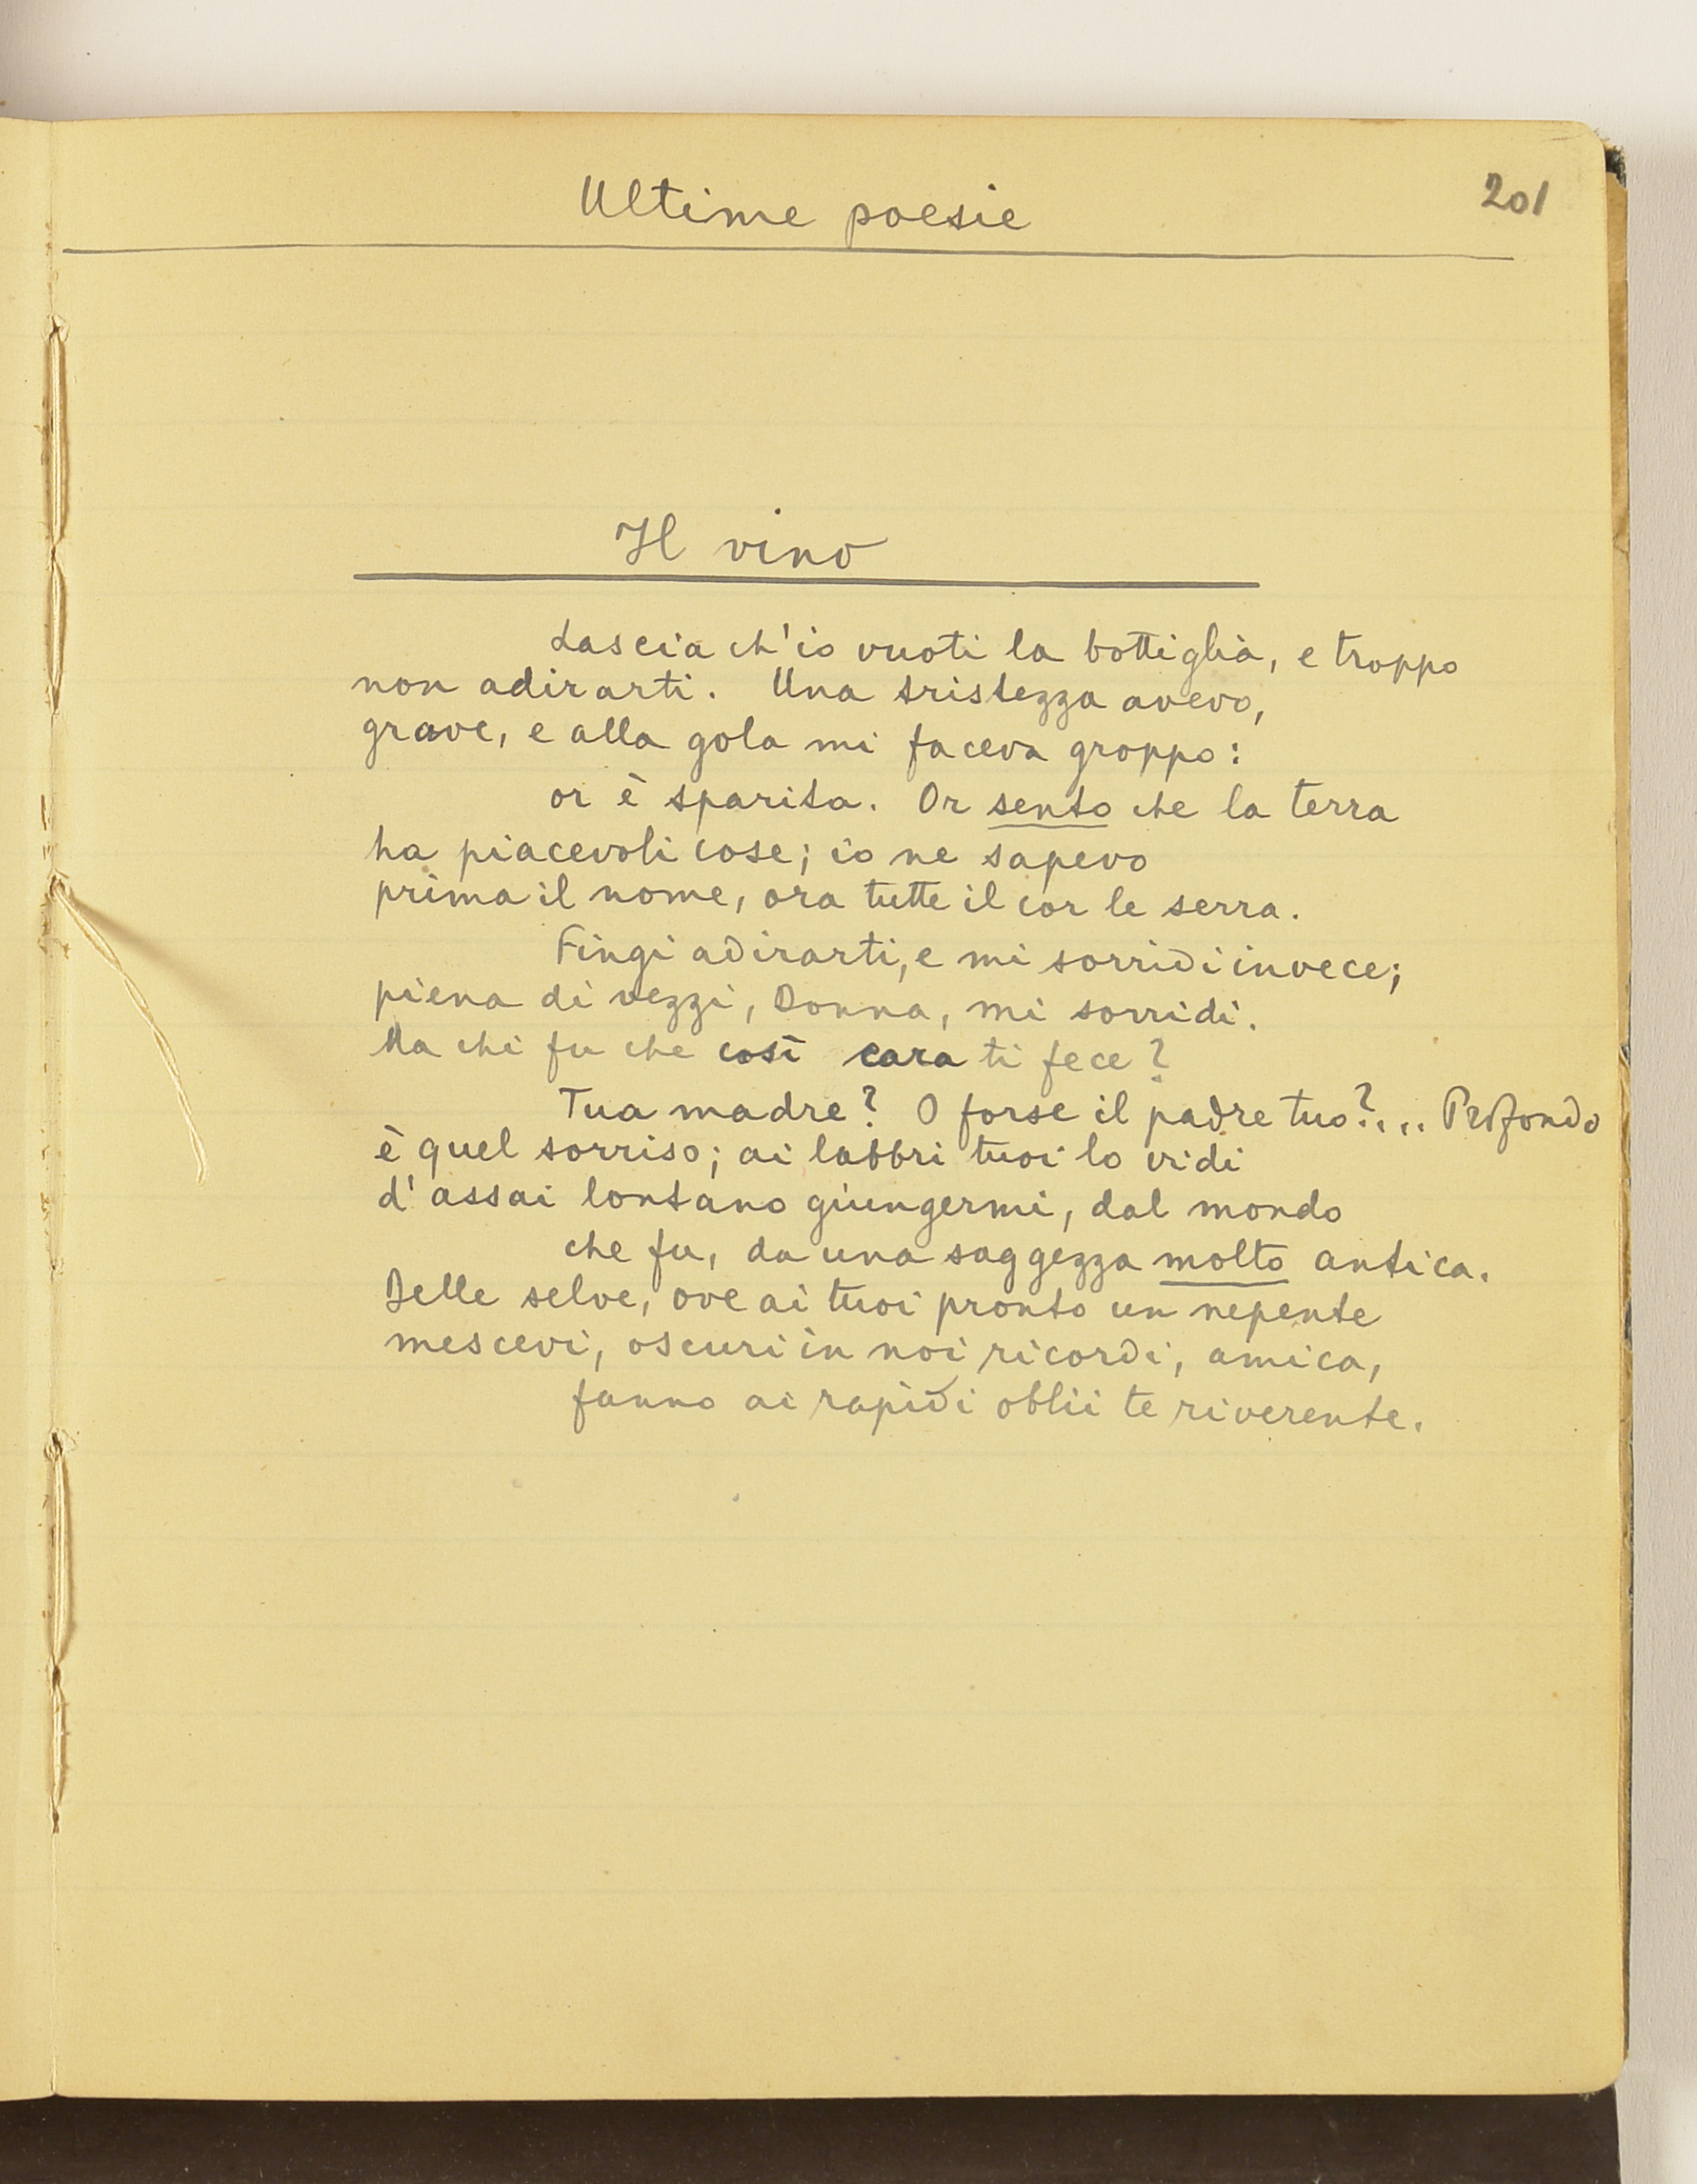 Ultime poesie
201
Il vino
Lascia ch'io vuoti la bottiglia, e troppo
non adirarti. Una tristezza avevo,
grave, e alla gola mi faceva groppo:
or è sparita. Or sento che la terra
ha piacevoli cose; io ne sapevo
prima il nome, ora tutte il cor le serra.
Fingi adirarti, e mi sorridi invece;
piena di vezzi, Donna, mi sorridi.
Ma chi fu che così cara ti fece?
Tua madre? O forse il padre tuo?... Profondo
è quel sorriso; ai labbri tuoi lo vidi
d'assai lontano giungermi, dal mondo
che fu, da una saggezza molto antica.
Delle selve, ove ai tuoi pronto un nepente
mescevi, oscuri in noi ricordi, amica,
fanno ai rapidi oblii te riverente.